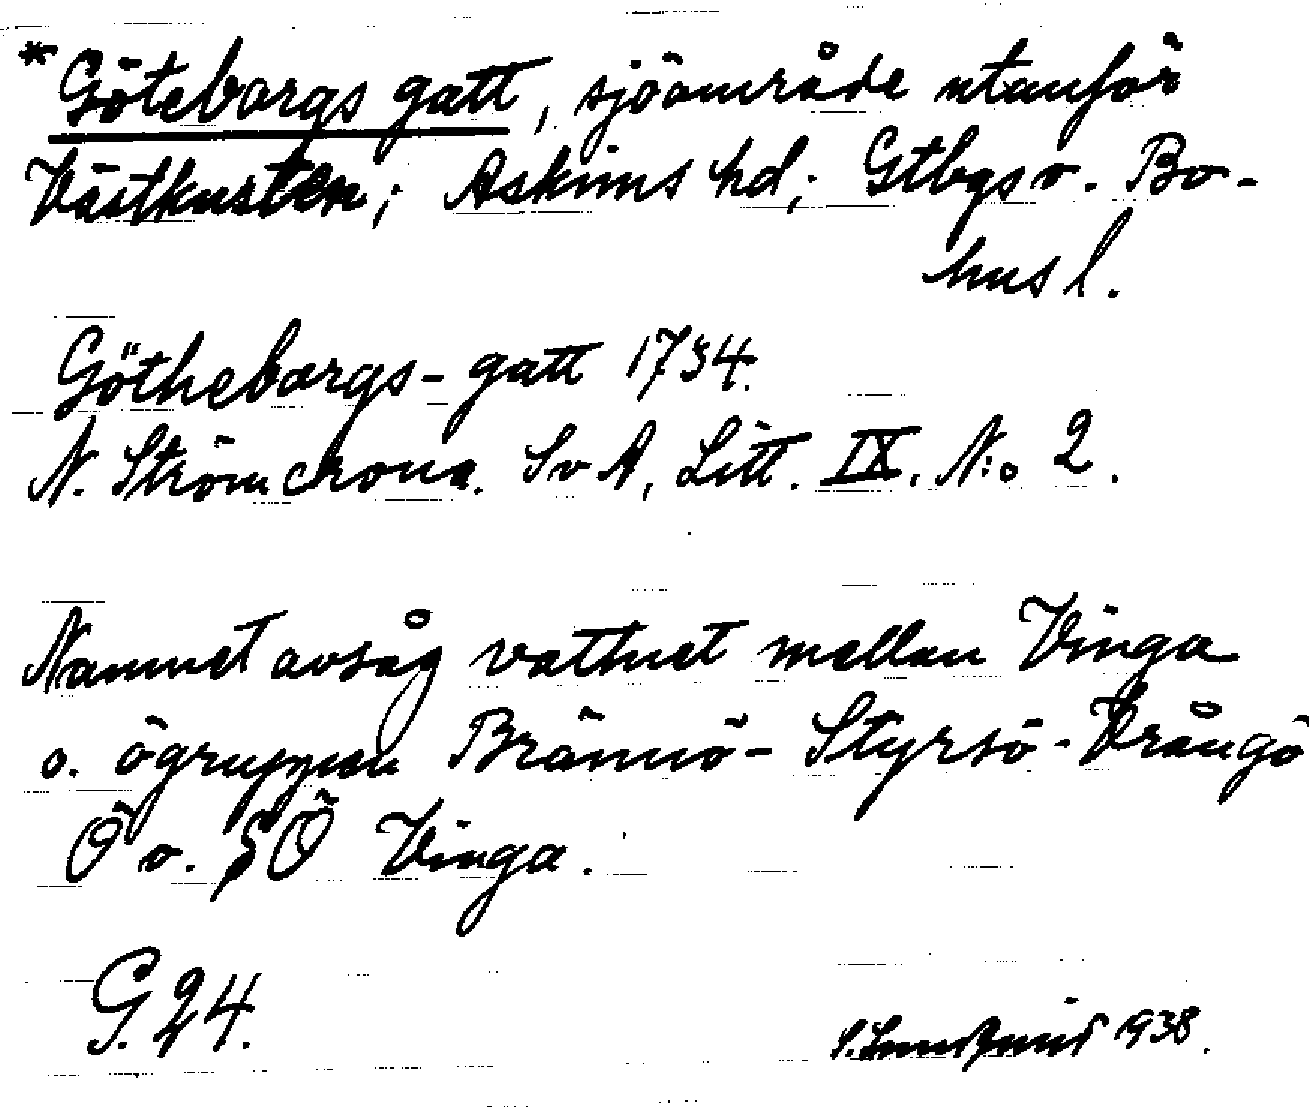 * Göteborgs gatt, sjöområde utanför
Västkusten; Askims hd; Gtbgs o. Bo-
hus l.
Götheborgs-gatt 1734.
N. Strömcrona. SvA, Litt. IX. N:o 2.
Namnet avsåg vattnet mellan Vinga
o. ögruppen Brännö- Styrsö- Vrångö
Ö o. SÖ Vinga.
G. 24.
1938.